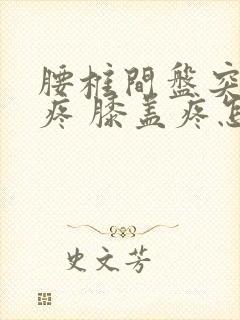 腰柱間盤突
疼 膝盖疼怎
史文芳